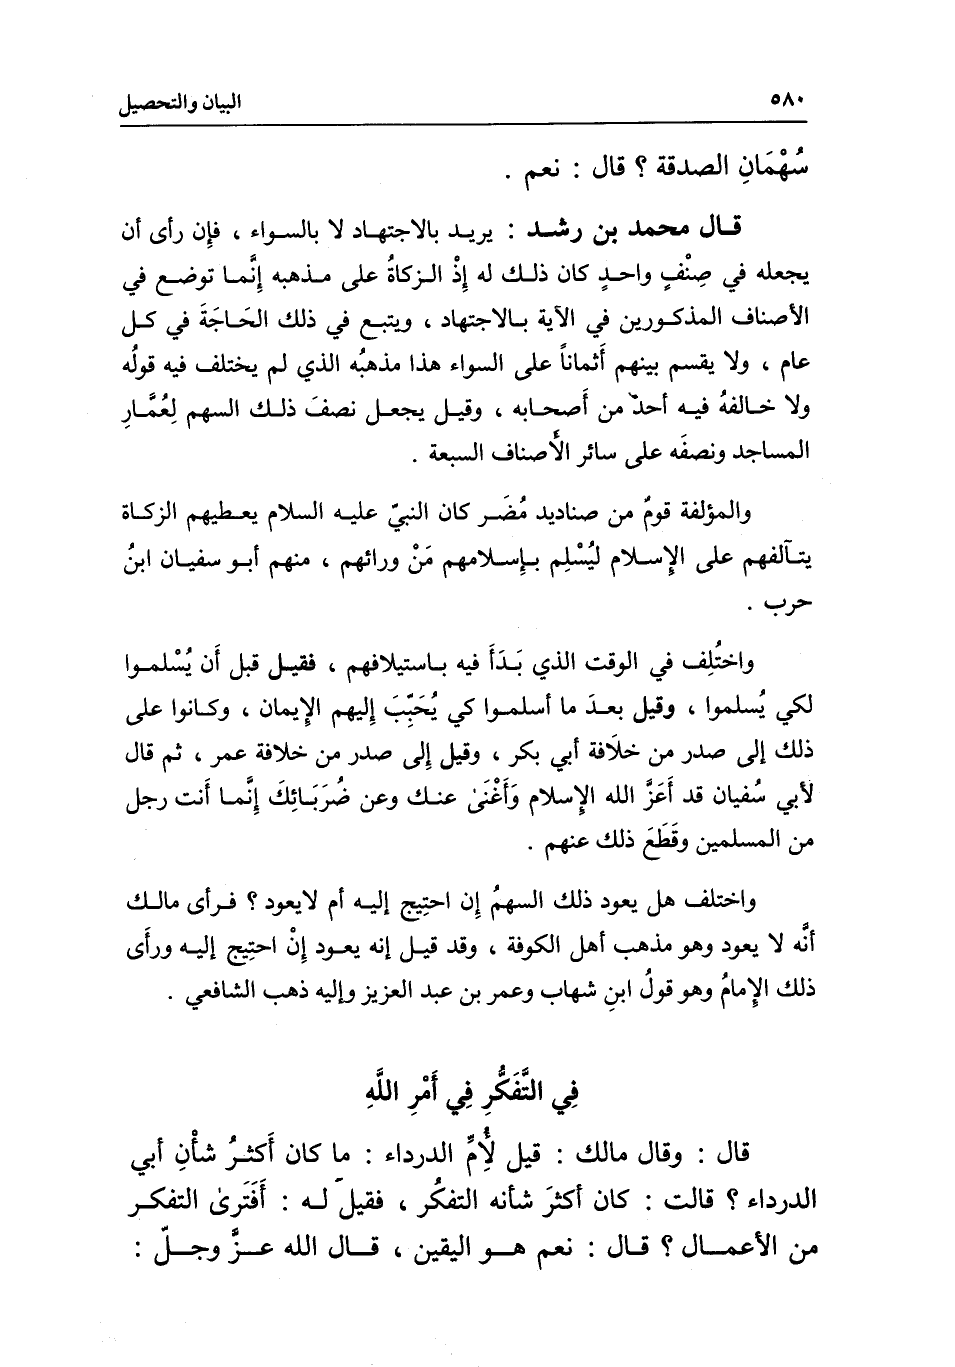 ٥٨٠ البيان والتحصيل
سُهْمَانِ الصدقة ؟ قال : نعم .
قال محمد بن رشد : يريد بالاجتهاد لا بالسواء ، فإن رأى أن
يجعله في صِنْفٍ واحدٍ كان ذلك له إذْ الزكاةُ على مذهبه إنَّما توضع في
الأصناف المذكورين في الآية بالاجتهاد ، ويتبع في ذلك الحَاجَةَ في كل
عام ، ولا يقسم بينهم أثماناً على السواء هذا مذهبُه الذي لم يختلف فيه قولُه
ولا خالفهُ فيه أحدٌ من أصحابه ، وقيل يجعل نصفَ ذلك السهم لِعُمَّارِ
المساجد ونصفَه على سائر الأصناف السبعة .
والمؤلفة قومُ من صناديد مُضَر كان النبيّ عليه السلام يعطيهم الزكاة
يتآلفهم على الإسلام ليُسْلِم بإسلامهم مَنْ ورائهم ، منهم أبو سفيان ابنُ
حرب .
واختُلِف في الوقت الذي بَدَأَ فيه باستيلافهم ، فقيل قبل أن يُسْلموا
لكي يُسلموا ، وقيل بعدَ ما أسلموا كي يُحَبِّبَ إليهم الإيمان ، وكانوا على
ذلك إلى صدر من خلَافة أبي بكر ، وقيل إلى صدر من خلافة عمر ، ثم قال
لأبي سُفيان قد أعَزَّ الله الإسلام وَأَغْنَىٰ عنك وعن ضُرَبَائِكَ إنَّما أنت رجل
من المسلمين وقَطَعَ ذلك عنهم .
واختلف هل يعود ذلك السهمُ إن احتِيج إليه أم لايعود ؟ فرأى مالك
أنَّه لا يعود وهو مذهب أهل الكوفة ، وقد قيل إنه يعود إنْ احتِيج إليه ورأَى
ذلك الإمامُ وهو قولُ ابنِ شهاب وعمر بن عبد العزيز وإليه ذهب الشافعي .
فِي التَّفَكُّرِ فِي أَمْرِ اللَّهِ
قال : وقال مالك : قيل لُأِمِّ الدرداء : ما كان أكثرُ شأْنِ أبي
الدرداء ؟ قالت : كان أكثَر شأنه التفكُر ، فقيلَ له : أفَتَرىٰ التفكر
من الأعمال ؟ قال : نعم هو اليقين ، قال الله عزَّ وجلّ :